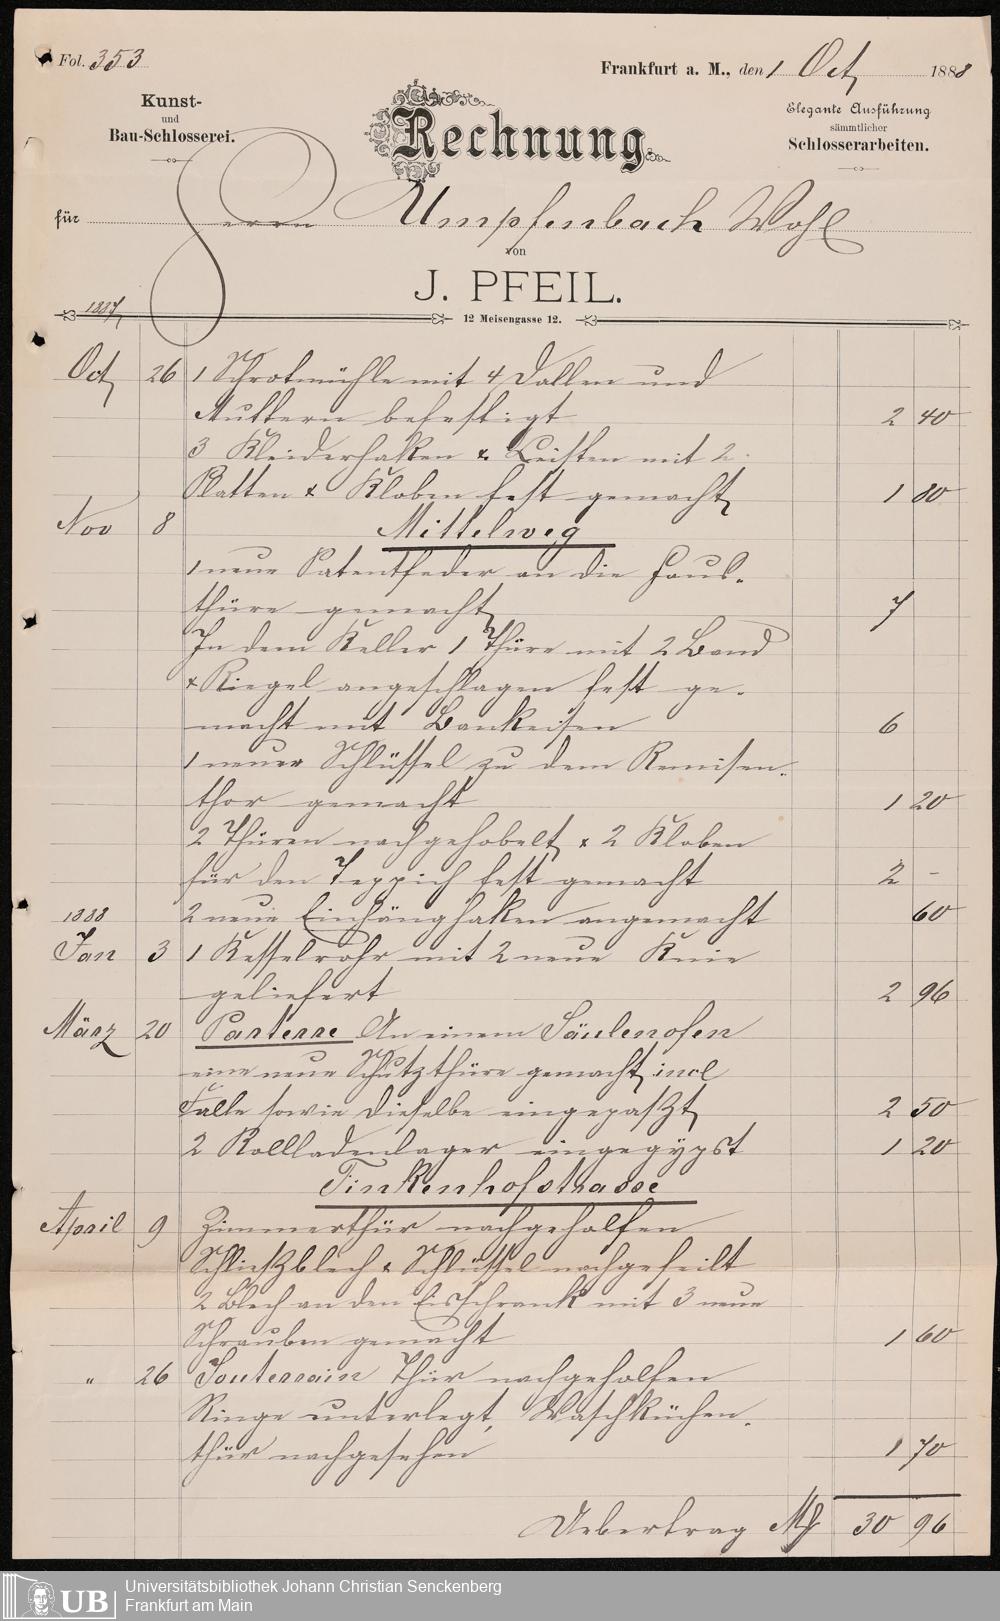 Fol. 353
Frankfurt a. M., den 1 Oct 1888
Kunst-
und
Bau-Schlosserei.
Rechnung.
Elegante Ausführung
sämmtlicher
Schlosserarbeiten.
für Herrn Umpfenbach Wohl
von
J. PFEIL.
12 Meisengasse 12.
1887
Oct 26 1 Schrotmühle mit 4 Dallen und
Muttern befestigt 2 40
3 Kleiderhaken & Leisten mit 2
Platten & Kloben fest gemacht 1 80
Nov 8 Mittelweg
1 neue Patentfeder an die Haus-
thüre gemacht 7
In dem Keller 1 Thüre mit 2 Band
& Riegel angeschlagen fest ge-
macht mit Bankeisen 6
1 neuer Schlüssel zu dem Remisen-
thor gemacht 1 20
2 Thüren nachgehobelt & 2 Kloben
für den Teppich fest gemacht 2 -
1888 2 neue Einhänghaken angemacht 60
Jan 3 1 Kesselrohr mit 2 neue Knie
geliefert 2 96
März 20 Parterre An einem Säulenofen
eine neue Schutzthüre gemacht incl
Falle sowie dieselbe eingepaßt 2 50
2 Rollladenlager eingegypst 1 20
Finkenhofstrasse
April 9 Zimmerthür nachgeholfen
Schließblech & Schlüssel nachgefeilt
2 Blech an den Eisschrank mit 3 neue
Schrauben gemacht 1 60
" 26 Souterrain Thür nachgeholfen
Ringe unterlegt, Waschküchen-
thür nachgesehen 1 70
Uebertrag M 30 96
UB
Universitätsbibliothek Johann Christian Senckenberg
Frankfurt am Main